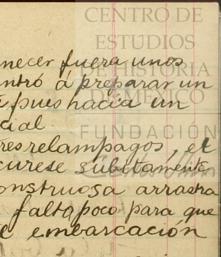 CENTRO DE
ESTUDIOS
DE HISTORIA
DE MEXICO
FUNDACIÓN
necer fuera unos
ntró á preparar un
pues hacia un
cial
res relampagos, el
curese subitamente
onstruosa arrastra
falta poco para que
embarcación